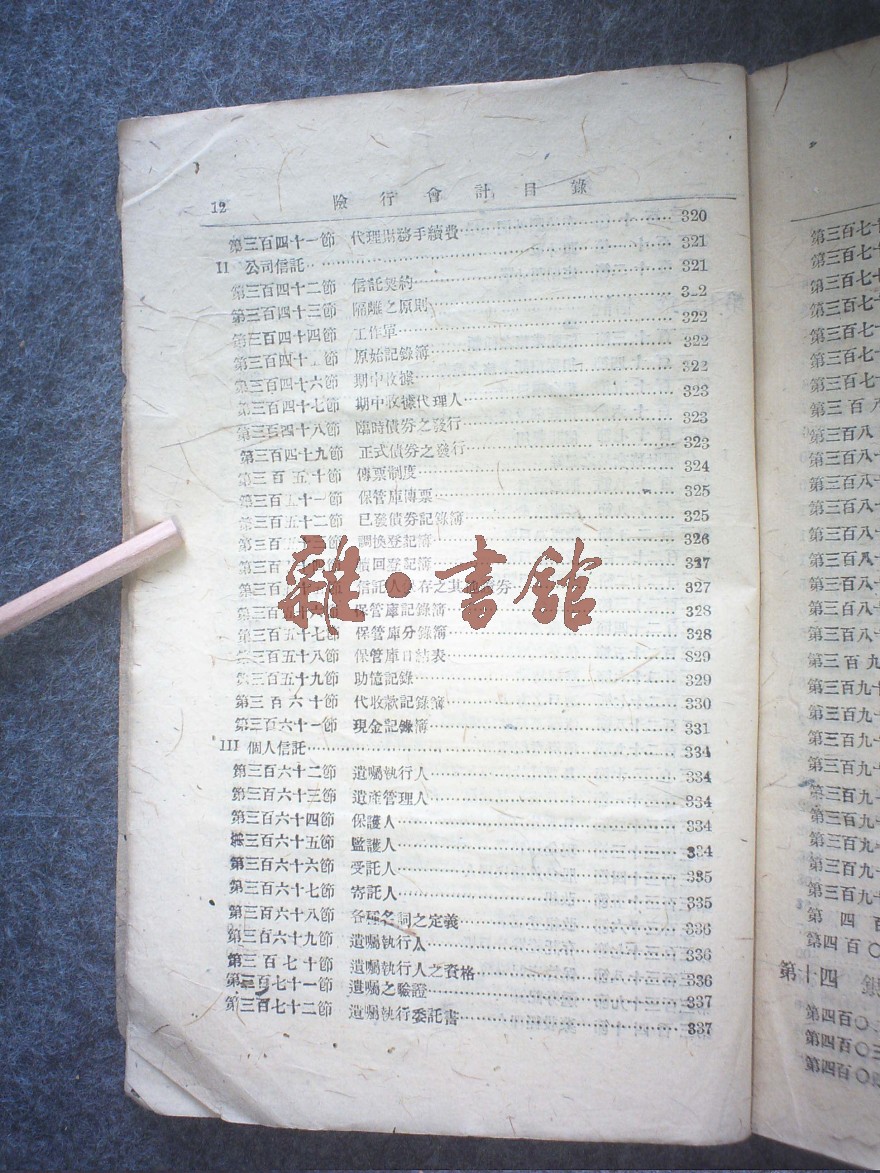 12 險行會計目錄
第三百四十一節 代理財務手續費 320
II 公司信託 321
第三百四十二節 信託契約 321
第三百四十三節 隔離之原則 322
第三百四十四節 工作單 322
第三百四十 節 原始記錄簿 322
第三百四十六節 期中收據 322
第三百四十七節 期中收據代理人 323
第三百四十八節 臨時債券之發行 323
第三百四十九節 正式債券之發行 323
第三百五十節 傳票制度 324
第三百五十一節 保管庫傳票 325
第三百五十二節 已發債券記錄簿 325
第三百五十三節 調換登記簿 326
回登記簿 327
信託人 存之其 券 327
保管庫記錄簿 328
第三百五十七節 保管庫分錄簿 328
第三百五十八節 保管庫日結表 329
第三百五十九節 助憶記錄 329
第三百六十節 代收款記錄簿 330
第三百六十一節 現金記錄簿 331
III 個人信託 334
第三百六十二節 遺囑執行人 334
第三百六十三節 遺產管理人 334
第三百六十四節 保護人 334
第三百六十五節 監護人 334
第三百六十六節 受託人 335
第三百六十七節 寄託人 335
第三百六十八節 各種名詞之定義 336
第三百六十九節 遺囑執行人 336
第三百七十節 遺囑執行人之資格 336
第三百七十一節 遺囑之驗證 337
第三百七十二節 遺囑執行委託書 337
雜·書館
第三百七十
第三百七
第三百七十
第三百七十
第三百七十
第三百七十
第三百七十
第三百八
第三百八十
第三百八十
第三百八十
第三百八十
第三百八十
第三百八十
第三百八十
第三百八十
第三百八十
第三百九
第三百九十
第三百九十
第三百九十
第三百九十
第三百九十
第三百九十
第三百九十
第三百九十
第三百九十
第四百
第四百〇
第十四 銀
第四百〇
第四百〇三
第四百〇